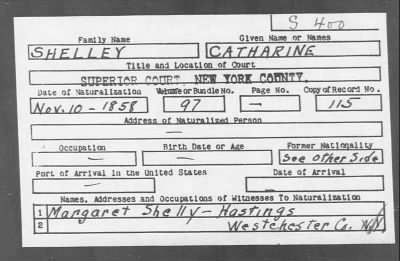 S 400
Family Name Given Name or Names
SHELLEY CATHARINE
Title and Location of Court
SUPERIOR COURT, NEW YORK COUNTY.
Date of Naturalization Volume or Bundle No. Page No. Copy of Record No.
Nov. 10 - 1858 97 — 115
Address of Naturalized Person
—
Occupation Birth Date or Age Former Nationality
— — See other Side
Port of Arrival in the United States Date of Arrival
— —
Names, Addresses and Occupations of Witnesses To Naturalization
1 Margaret Shelly - Hastings
2 Westchester Co. N.Y.